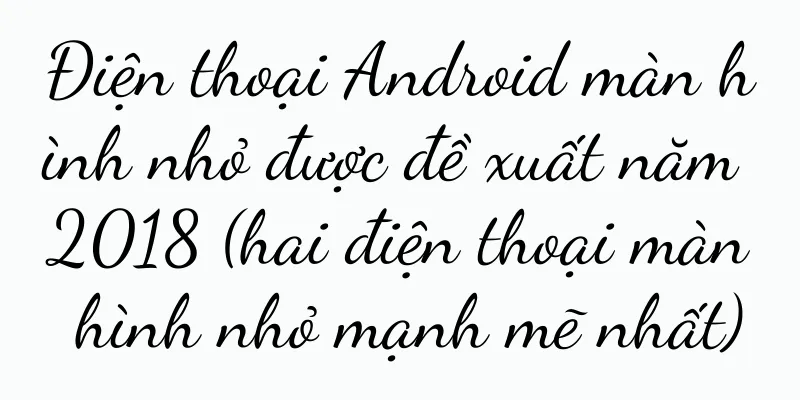 Điện thoại Android màn h
ình nhỏ được đề xuất năm
2018 (hai điện thoại màn
hình nhỏ mạnh mẽ nhất)